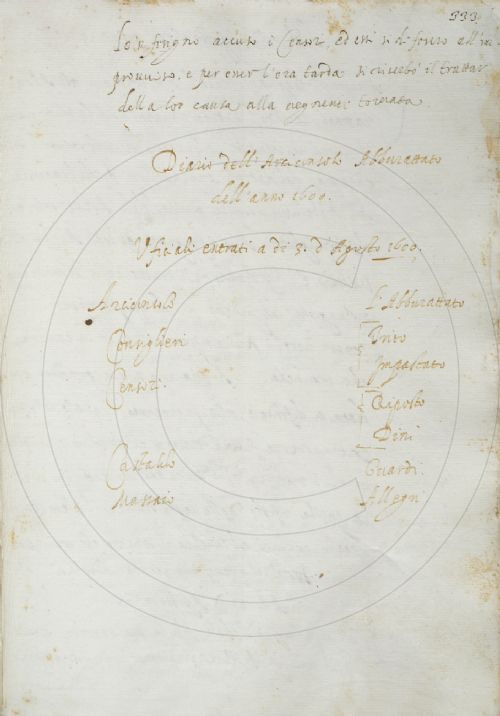 333
Lo 'nferigno accusò i Censori, ed essi si difesero all'im
provviso, e per esser l'ora tarda si riserbò il trattar
della lor causa alla vegnente tornata.
Diario dell' Arciconsolo Abburattato
dell' anno 1609.
Uficiali entrati a dì 5. d'Agosto 1609.
Arciconsolo L'Abburattato
Consiglieri Trito
Impastato
Censori Riposto
Dini
Castaldo Guardi
Massaio Allegri